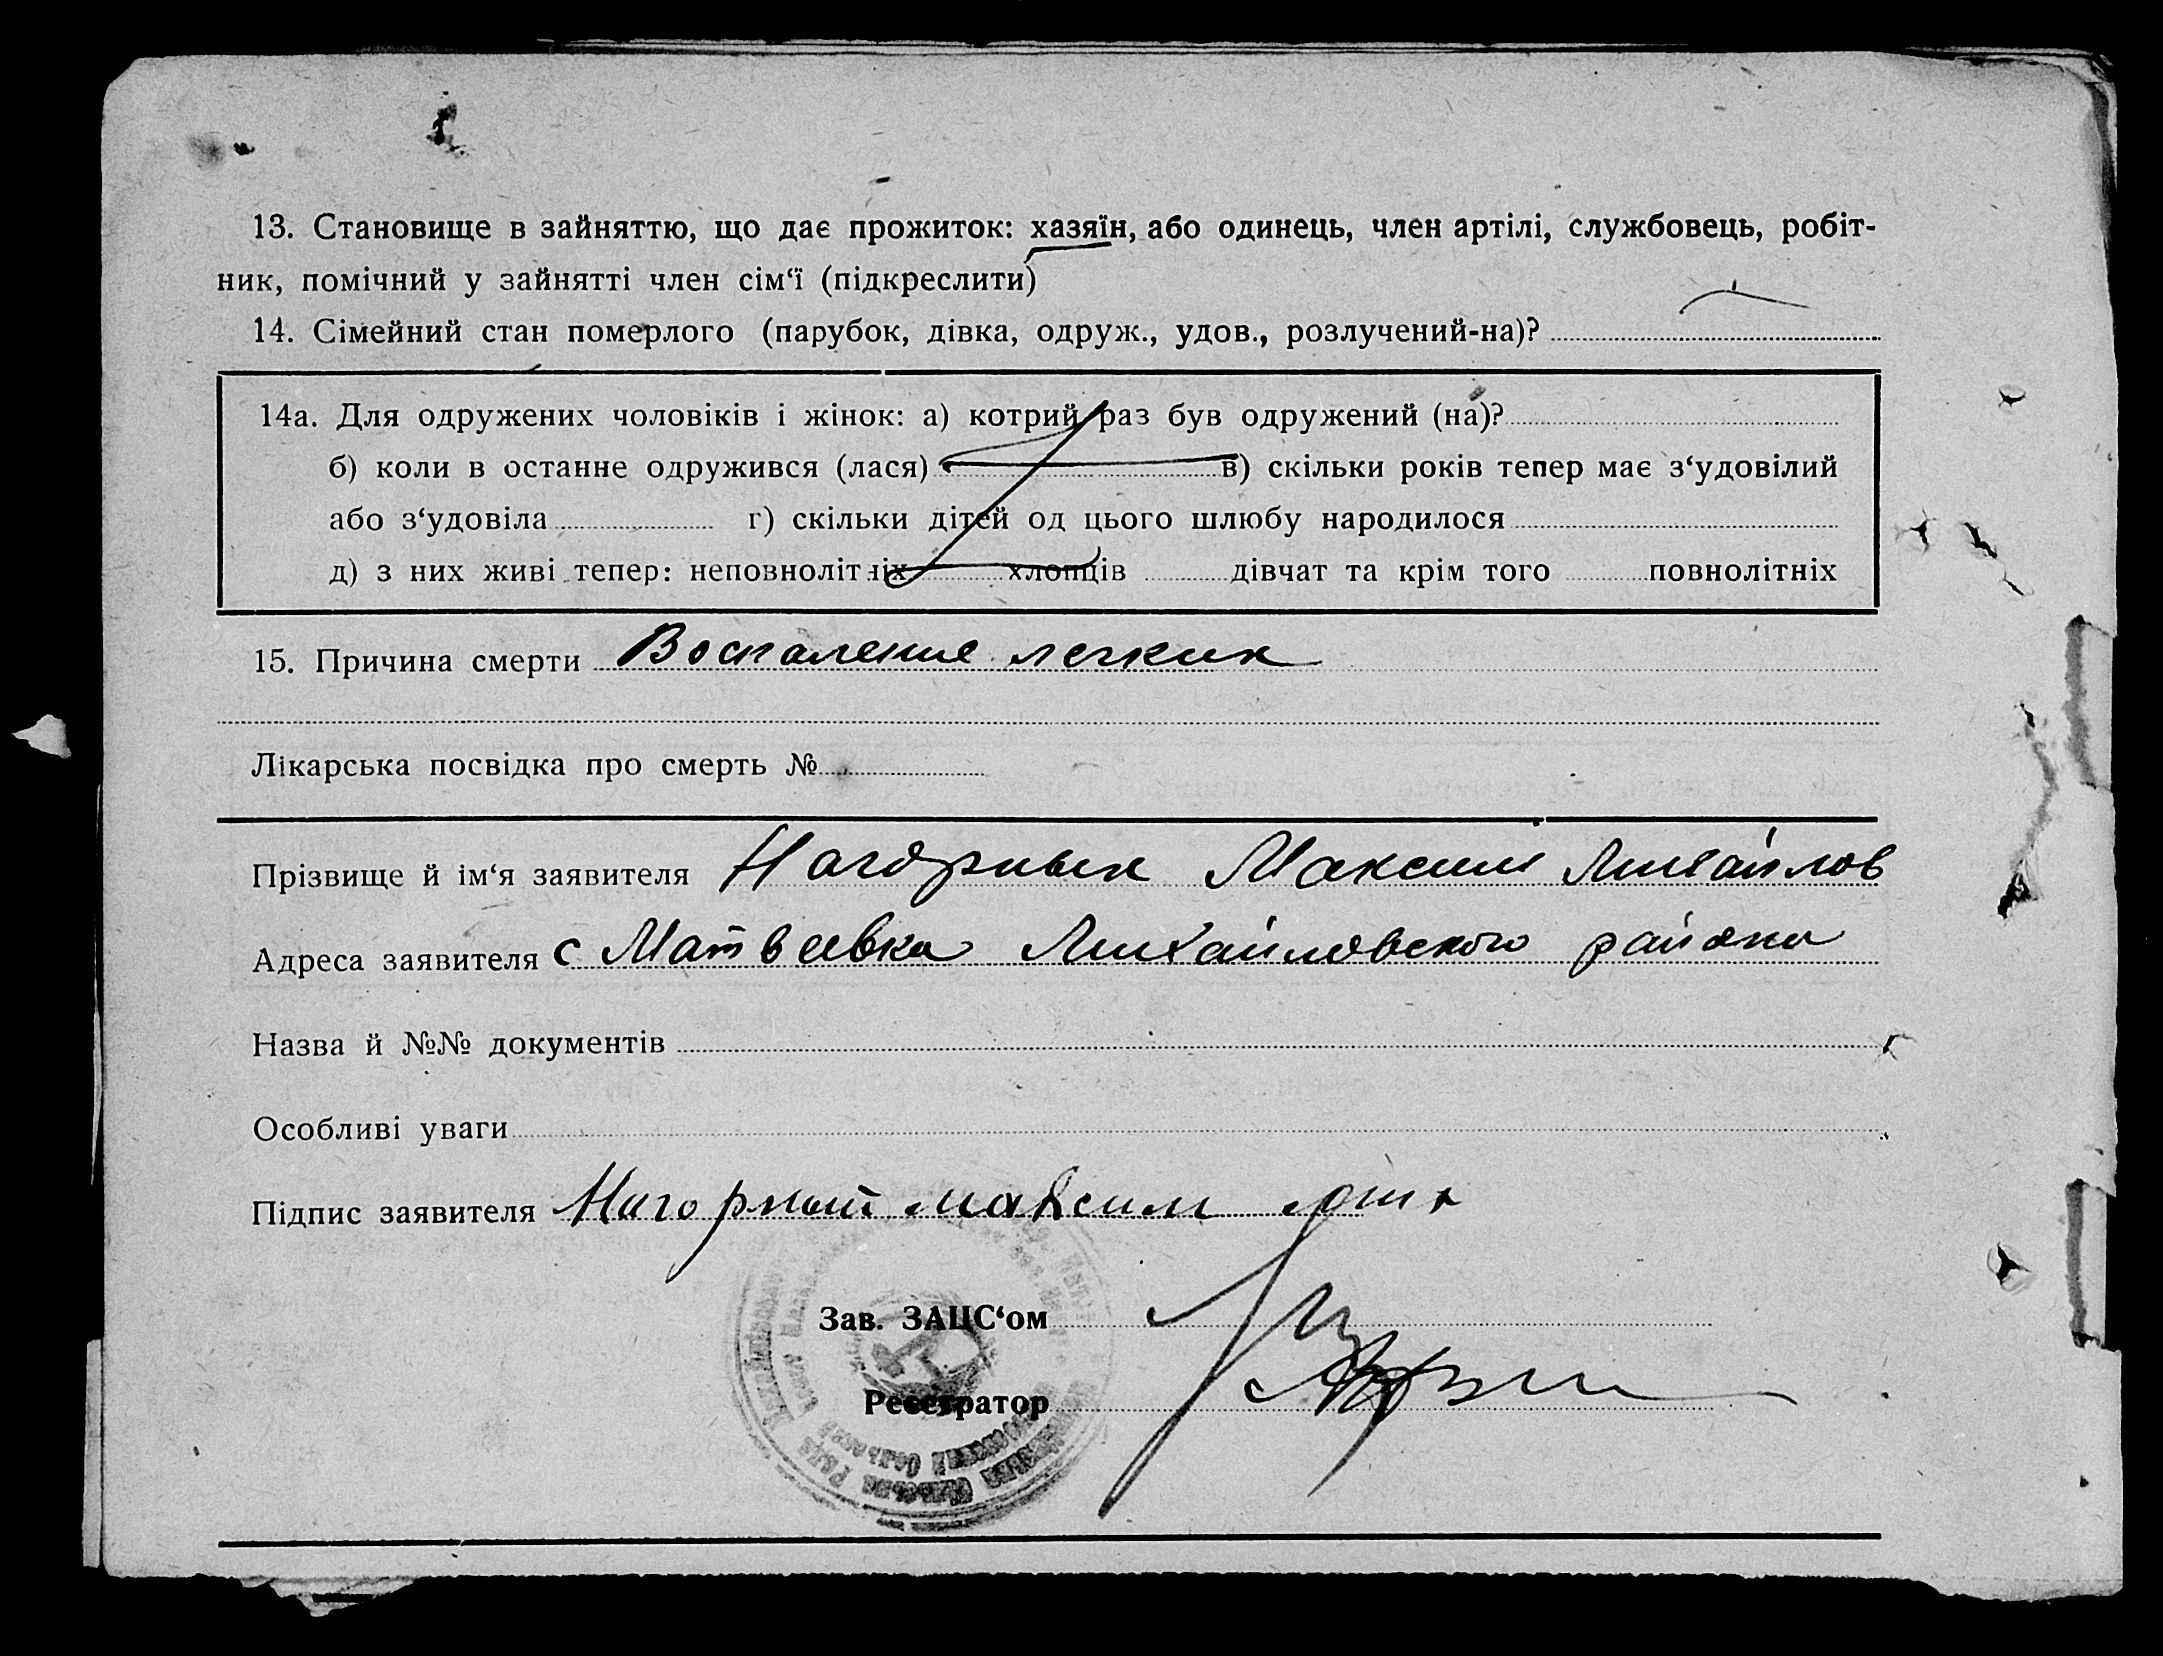 13. Становище в зайняттю, що дає прожиток: хазяїн, або одинець, член артілі, службовець, робіт-
ник, помічний у зайнятті член сім‘ї (підкреслити)
14. Сімейний стан померлого (парубок, дівка, одруж., удов., розлучений-на)?
14а. Для одружених чоловіків і жінок: а) котрий раз був одружений (на)?
б) коли в останне одружився (лася) в) скільки років тепер має з‘удовілий
або з‘удовіла г) скільки дітей од цього шлюбу народилося
д) з них живі тепер: неповнолітніх хлопців дівчат та крім того повнолітніх
15. Причина смерти Воспаление легких
Лікарська посвідка про смерть №
Прізвище й ім‘я заявителя Нагорных Максим Михайлов
Адреса заявителя с Матвеевка Михайловского района
Назва й №№ документів
Особливі уваги
Підпис заявителя Нагорный максим
Зав. ЗАЦС‘ом
Реєстратор